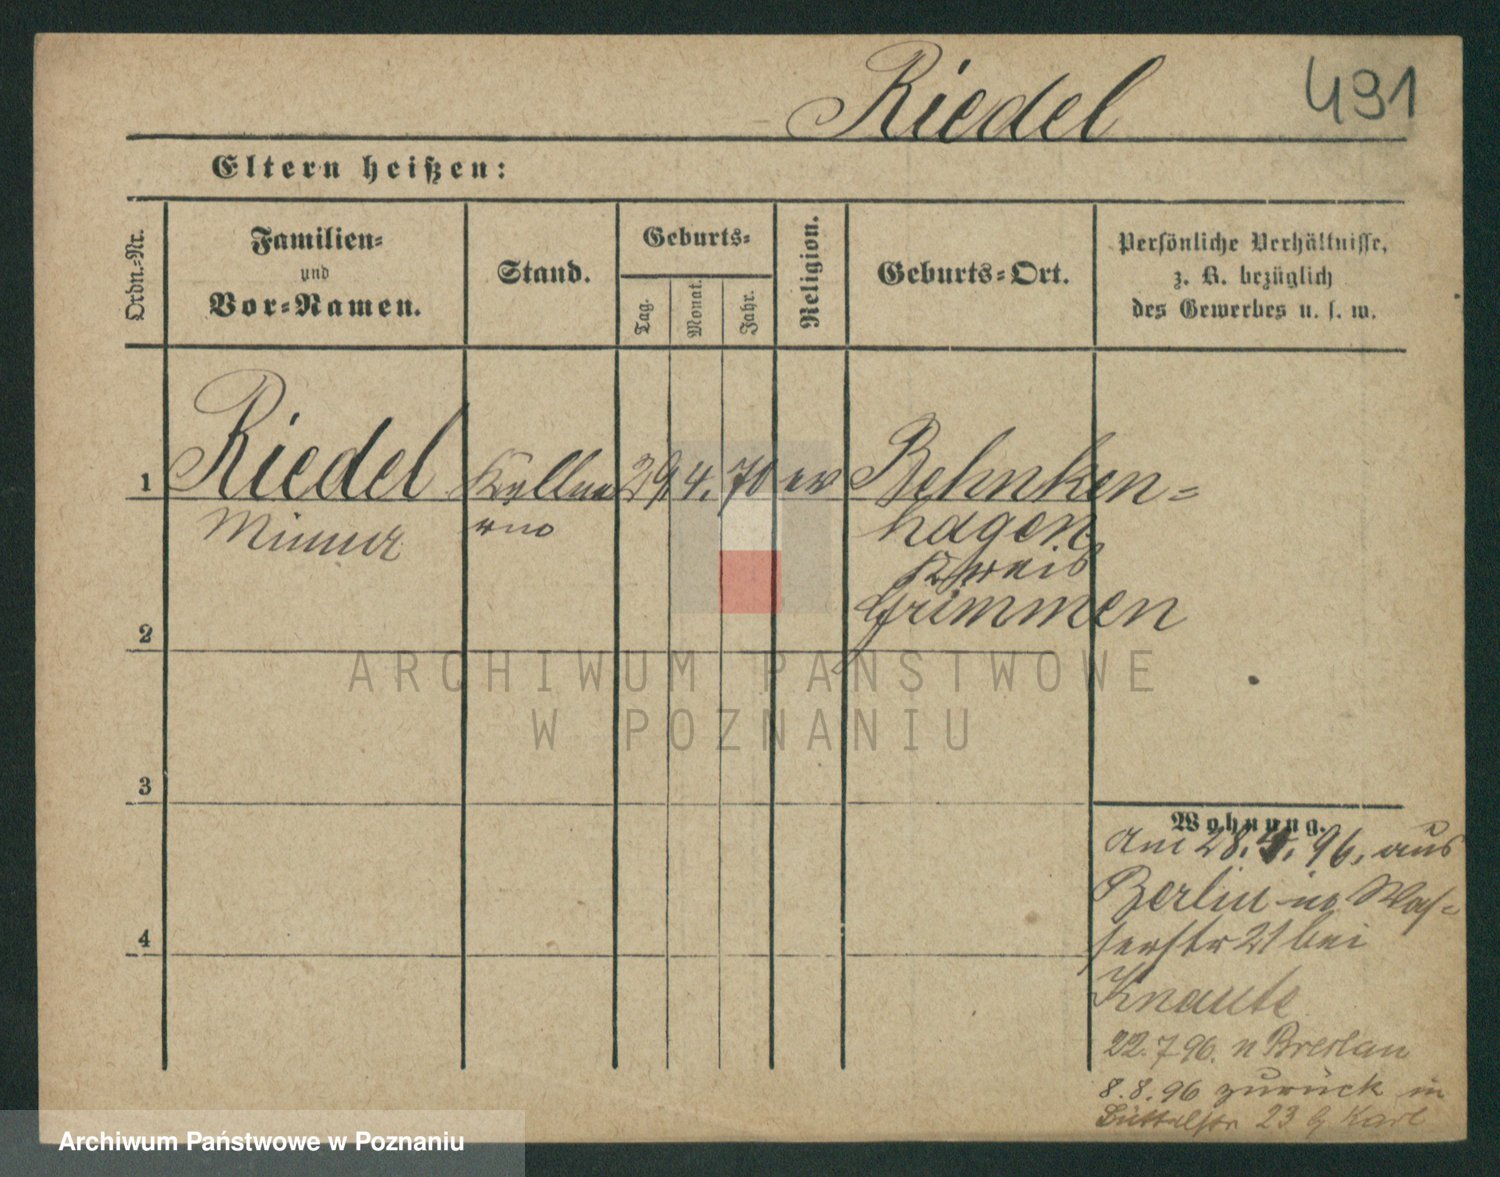 Riedel
491
Eltern heißen:
Ordn.-Nr.
Familien-
und
Vor-Namen.
Stand.
Geburts-
Tag.
Monat.
Jahr.
Religion.
Geburts-Ort.
Persönliche Verhältnisse,
z. B. bezüglich
des Gewerbes u. s. w.
1
Riedel
Kelln
29. 4. 70
ev
Behnken-
Minna
hagen
Kreis
Grimmen
2
ARCHIWUM PAŃSTWOWE
W POZNANIU
3
4
Wohnung.
Am 28. 4. 96. aus
Berlin in Was-
serstr 21 bei
Knaute
22. 7 96. n Breslau
8. 8. 96 zurück in
Büttelstr 23 b Karl
Archiwum Państwowe w Poznaniu